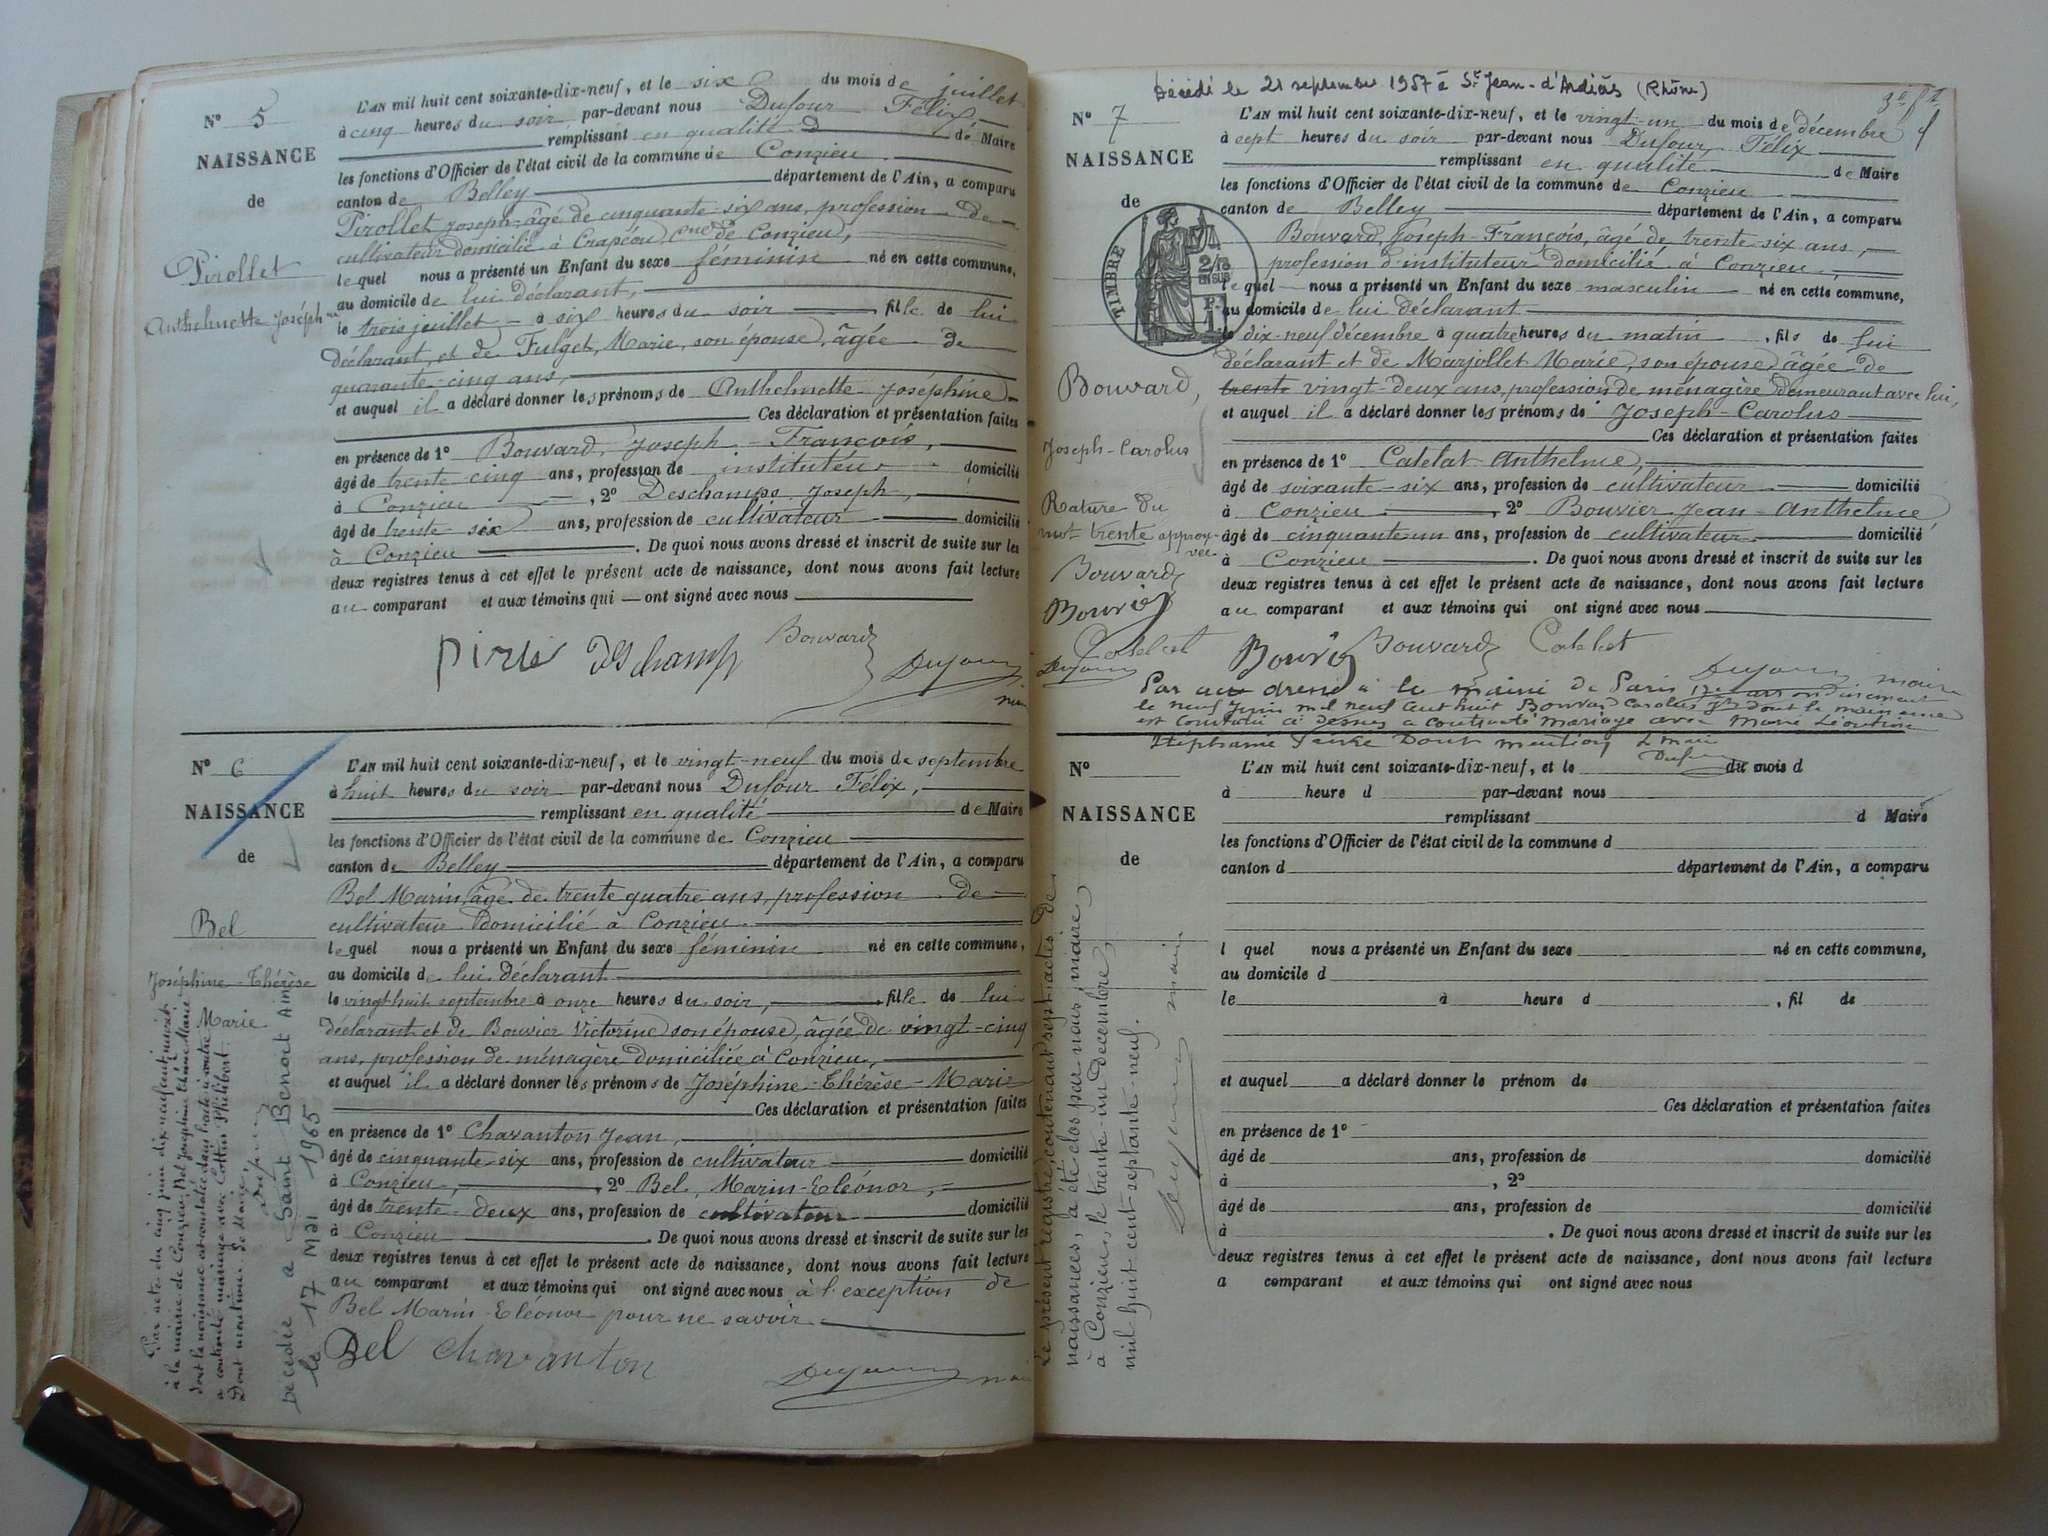 N° 5
NAISSANCE
de
Pirollet
Anthelmette Joséphine
L'AN mil huit cent soixante-dix-neuf, et le six du mois de juillet
à cinq heures du soir par-devant nous Dufour Félix
remplissant en qualité de Maire
les fonctions d'Officier de l'état civil de la commune de Conzieu
canton de Belley département de l'Ain, a comparu
Pirollet Joseph, âgé de cinquante-six ans, profession de
cultivateur domicilié à Crapéou, Cne de Conzieu,
lequel nous a présenté un Enfant du sexe féminin né en cette commune,
au domicile de lui déclarant,
le trois juillet à six heures du soir fille de lui
déclarant, et de Fulget, Marie, son épouse, âgée de
quarante-cinq ans,
et auquel il a déclaré donner les prénoms de Anthelmette Joséphine
Ces déclaration et présentation faites
en présence de 1° Bouvard, Joseph-François,
âgé de trente cinq ans, profession de instituteur domicilié
à Conzieu, 2° Deschamps Joseph,
âgé de trente six ans, profession de cultivateur domicilié
à Conzieu. De quoi nous avons dressé et inscrit de suite sur les
deux registres tenus à cet effet le présent acte de naissance, dont nous avons fait lecture
au comparant et aux témoins qui ont signé avec nous
Deschamps Bouvard
Dufour
N° 6
NAISSANCE
de
Bel
Joséphine-Thérèse
Marie
L'AN mil huit cent soixante-dix-neuf, et le vingt-neuf du mois de septembre
à huit heures du soir par-devant nous Dufour Félix,
remplissant en qualité de Maire
les fonctions d'Officier de l'état civil de la commune de Conzieu
canton de Belley département de l'Ain, a comparu
Bel Marin, âgé de trente quatre ans, profession de
cultivateur domicilié à Conzieu
lequel nous a présenté un Enfant du sexe féminin né en cette commune,
au domicile de lui déclarant
le vingt huit septembre à onze heures du soir, fille de lui
déclarant et de Bouvier Victorine son épouse, âgée de vingt-cinq
ans, profession de ménagère domiciliée à Conzieu,
et auquel il a déclaré donner les prénoms de Joséphine-Thérèse-Marie
Ces déclaration et présentation faites
en présence de 1° Chavanton Jean,
âgé de cinquante-six ans, profession de cultivateur domicilié
à Conzieu, 2° Bel, Marin-Eléonor,
âgé de trente-deux ans, profession de cultivateur domicilié
à Conzieu. De quoi nous avons dressé et inscrit de suite sur les
deux registres tenus à cet effet le présent acte de naissance, dont nous avons fait lecture
au comparant et aux témoins qui ont signé avec nous à l'exception de
Bel Marin Eléonor pour ne savoir
Bel Chavanton
Dufour
Par acte du cinq juin dix neuf cent
à la mairie de Conzieu, Bel Joséphine Thérèse Marie
dont la naissance est constatée dans l'acte ci-contre
a contracté mariage avec Cottin Philibert.
Dont mention. Le Maire,
Décédée à Saint Benoit Ain
le 17 Mai 1965
Décédé le 21 septembre 1957 à St Jean-d'Ardières (Rhône)
N° 7
NAISSANCE
de
TIMBRE
Bouvard,
Joseph-Carolus
Rature du
mot trente approu-
vée
Bouvard
Bouvier
Catelat
Dufour
L'AN mil huit cent soixante-dix-neuf, et le vingt-un du mois de décembre
à sept heures du soir par-devant nous Dufour, Félix
remplissant en qualité de Maire
les fonctions d'Officier de l'état civil de la commune de Conzieu
canton de Belley département de l'Ain, a comparu
Bouvard, Joseph-François, âgé de trente-six ans,
profession d'instituteur domicilié à Conzieu
lequel nous a présenté un Enfant du sexe masculin né en cette commune,
au domicile de lui déclarant
le dix-neuf décembre à quatre heures du matin, fils de lui
déclarant et de Marjollet Marie, son épouse, âgée de
trente vingt-deux ans, profession de ménagère demeurant avec lui,
et auquel il a déclaré donner les prénoms de Joseph-Carolus
Ces déclaration et présentation faites
en présence de 1° Catelat Anthelme,
âgé de soixante-six ans, profession de cultivateur domicilié
à Conzieu, 2° Bouvier Jean-Anthelme
âgé de cinquante un ans, profession de cultivateur domicilié
à Conzieu. De quoi nous avons dressé et inscrit de suite sur les
deux registres tenus à cet effet le présent acte de naissance, dont nous avons fait lecture
au comparant et aux témoins qui ont signé avec nous
Bouvier Bouvard Catelat
Dufour maire
Par acte dressé à la mairie de Paris arrondissement
le neuf Juin mil neuf cent huit Bouvard Carolus Jh dont la naissance
est constatée ci dessus a contracté mariage avec Marie Léontine
Stéphanie Dont mention Le Maire
N°
NAISSANCE
de
L'AN mil huit cent soixante-dix-neuf, et le du mois d
à heure d par-devant nous
remplissant d Maire
les fonctions d'Officier de l'état civil de la commune d
canton d département de l'Ain, a comparu
l quel nous a présenté un Enfant du sexe né en cette commune,
au domicile d
le à heure d, fil de
et auquel a déclaré donner le prénom de
Ces déclaration et présentation faites
en présence de 1°
âgé de ans, profession de domicilié
à, 2°
âgé de ans, profession de domicilié
à. De quoi nous avons dressé et inscrit de suite sur les
deux registres tenus à cet effet le présent acte de naissance, dont nous avons fait lecture
a comparant et aux témoins qui ont signé avec nous
Le présent registre, contenant sept actes de
naissances, a été clos par nous, maire,
à Conzieu, le trente-un décembre
mil huit cent septante-neuf.
Dufour maire